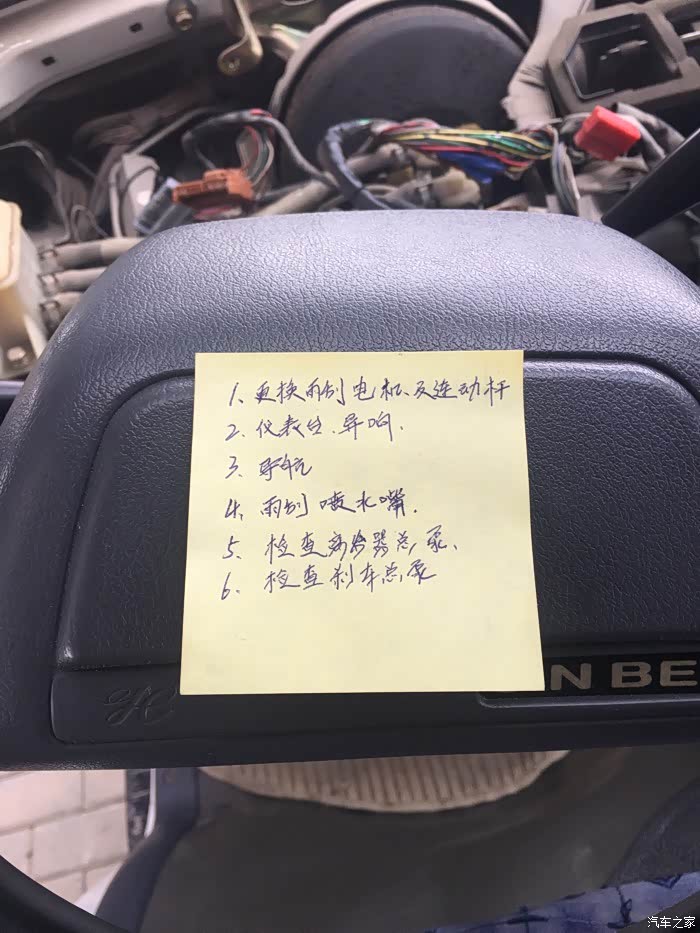 1、更换雨刮电机及连动杆
2、仪表台、异响.
3、导航
4、雨刮喷水嘴.
5、检查离合器总泵、
6、检查刹车总泵
N BE
汽车之家